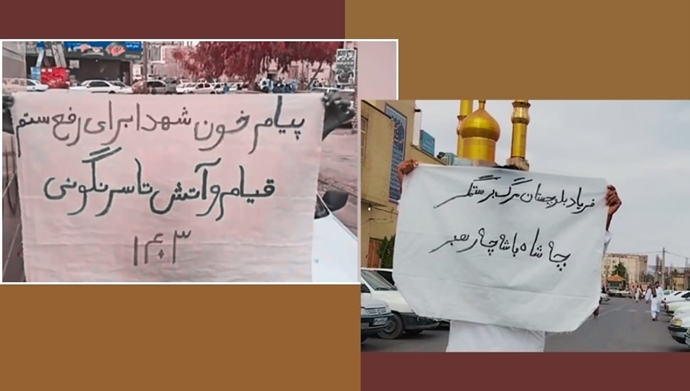 پیام خون شهدا برای رفع ستم
قیام و آتش تا سرنگونی
۱۴۰۳
فریاد بلوچستان مرگ بر ستمگر
چا شاه باشا چا رهبر